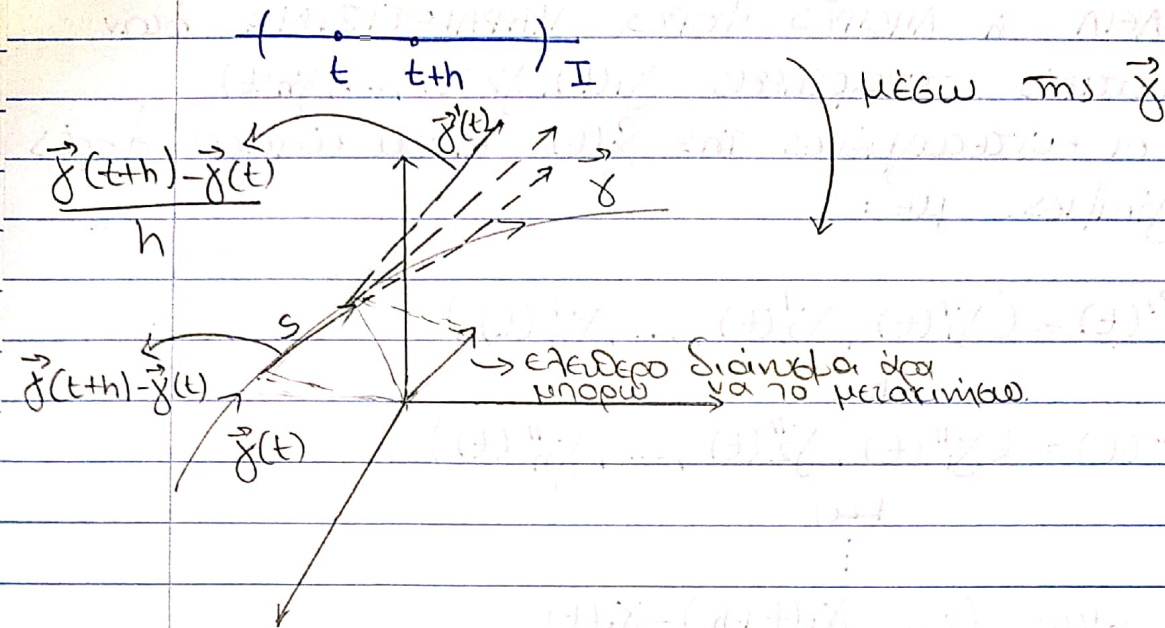 t t+h I
μέσω της γ⃗
γ⃗'(t)
γ⃗(t+h)-γ⃗(t)
h
γ⃗
S
γ⃗(t+h)-γ⃗(t)
γ⃗(t)
→ ελεύθερο διάνυσμα άρα
μπορώ να το μετακινήσω.